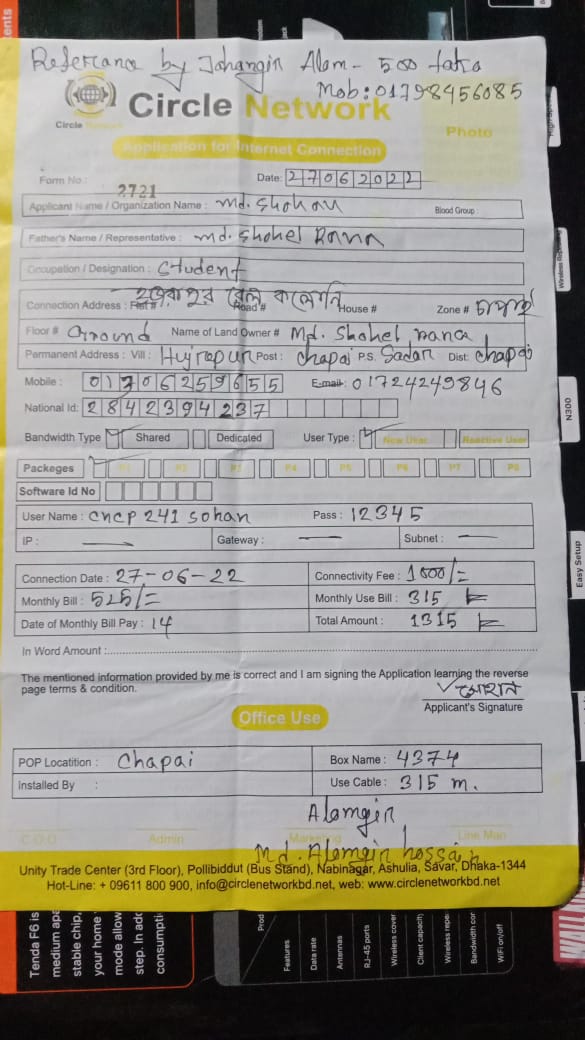 Referance by Jahangir Alam - 500 taka
Mob: 01798456085
Circle Network
Circle Network
Photo
Application for Internet Connection
Form No : 2721 Date: 27062022
Applicant Name / Organization Name : md. Shohan Blood Group :
Father's Name / Representative : md. Shohel Rana
Occupation / Designation : Student
Connection Address : Flat # হুজরাপুর রেল কলোনি Road # House # Zone # চাপাই
Floor # Ground Name of Land Owner # Md. Shohel rana
Permanent Address : Vill : Hujrapur Post : chapai P.S. Sadar Dist: Chapai
Mobile : 01706259655 E-mail: 01724249846
National Id: 2842394237
Bandwidth Type Shared Dedicated User Type : New User Reactive User
Packeges P1 P2 P3 P4 P5 P6 P7 P8
Software Id No
User Name : cncp241 sohan Pass : 12345
IP : — Gateway : — Subnet : —
Connection Date : 27-06-22 Connectivity Fee : 1000/=
Monthly Bill : 525/= Monthly Use Bill : 315
Date of Monthly Bill Pay : 14 Total Amount : 1315
In Word Amount :
The mentioned information provided by me is correct and I am signing the Application learning the reverse
page terms & condition.
সোহান
Applicant's Signature
Office Use
POP Locatition : Chapai Box Name : 4374
Installed By : Use Cable : 315 m.
Alamgir
C.O.O Admin Marketing Line Man
Md. Alamgir hossain
Unity Trade Center (3rd Floor), Pollibiddut (Bus Stand), Nabinagar, Ashulia, Savar, Dhaka-1344
Hot-Line: + 09611 800 900, info@circlenetworkbd.net, web: www.circlenetworkbd.net
Tenda F6 is
medium apa
stable chip,
your home
mode allow
step. In add
consumpti
Prod
Features
Data rate
Antennas
RJ-45 ports
Wireless cover
Client capacity
Wireless repe
Bandwidth con
WiFi on/off
Easy Setup
N300